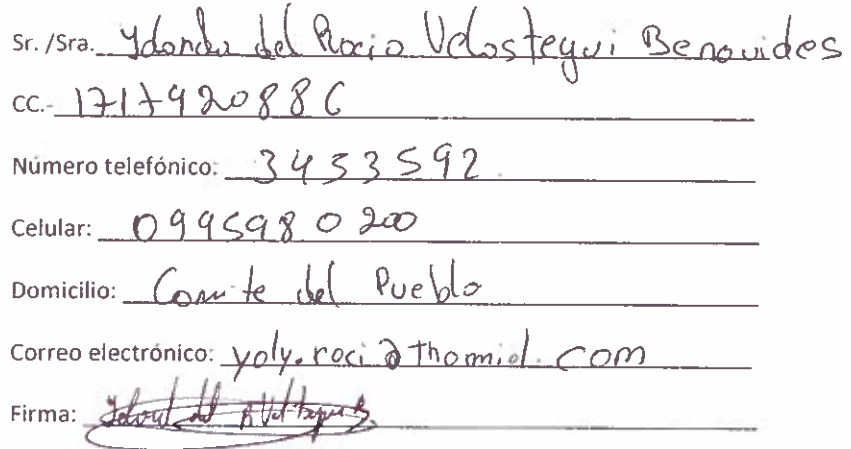 Sr. /Sra. Yolanda del Rocio Velastegui Benavides
CC.- 1717920886
Número telefónico: 3453592
Celular: 0995980200
Domicilio: Comite del Pueblo
Correo electrónico: yoly.roci@thomial.com
Firma: